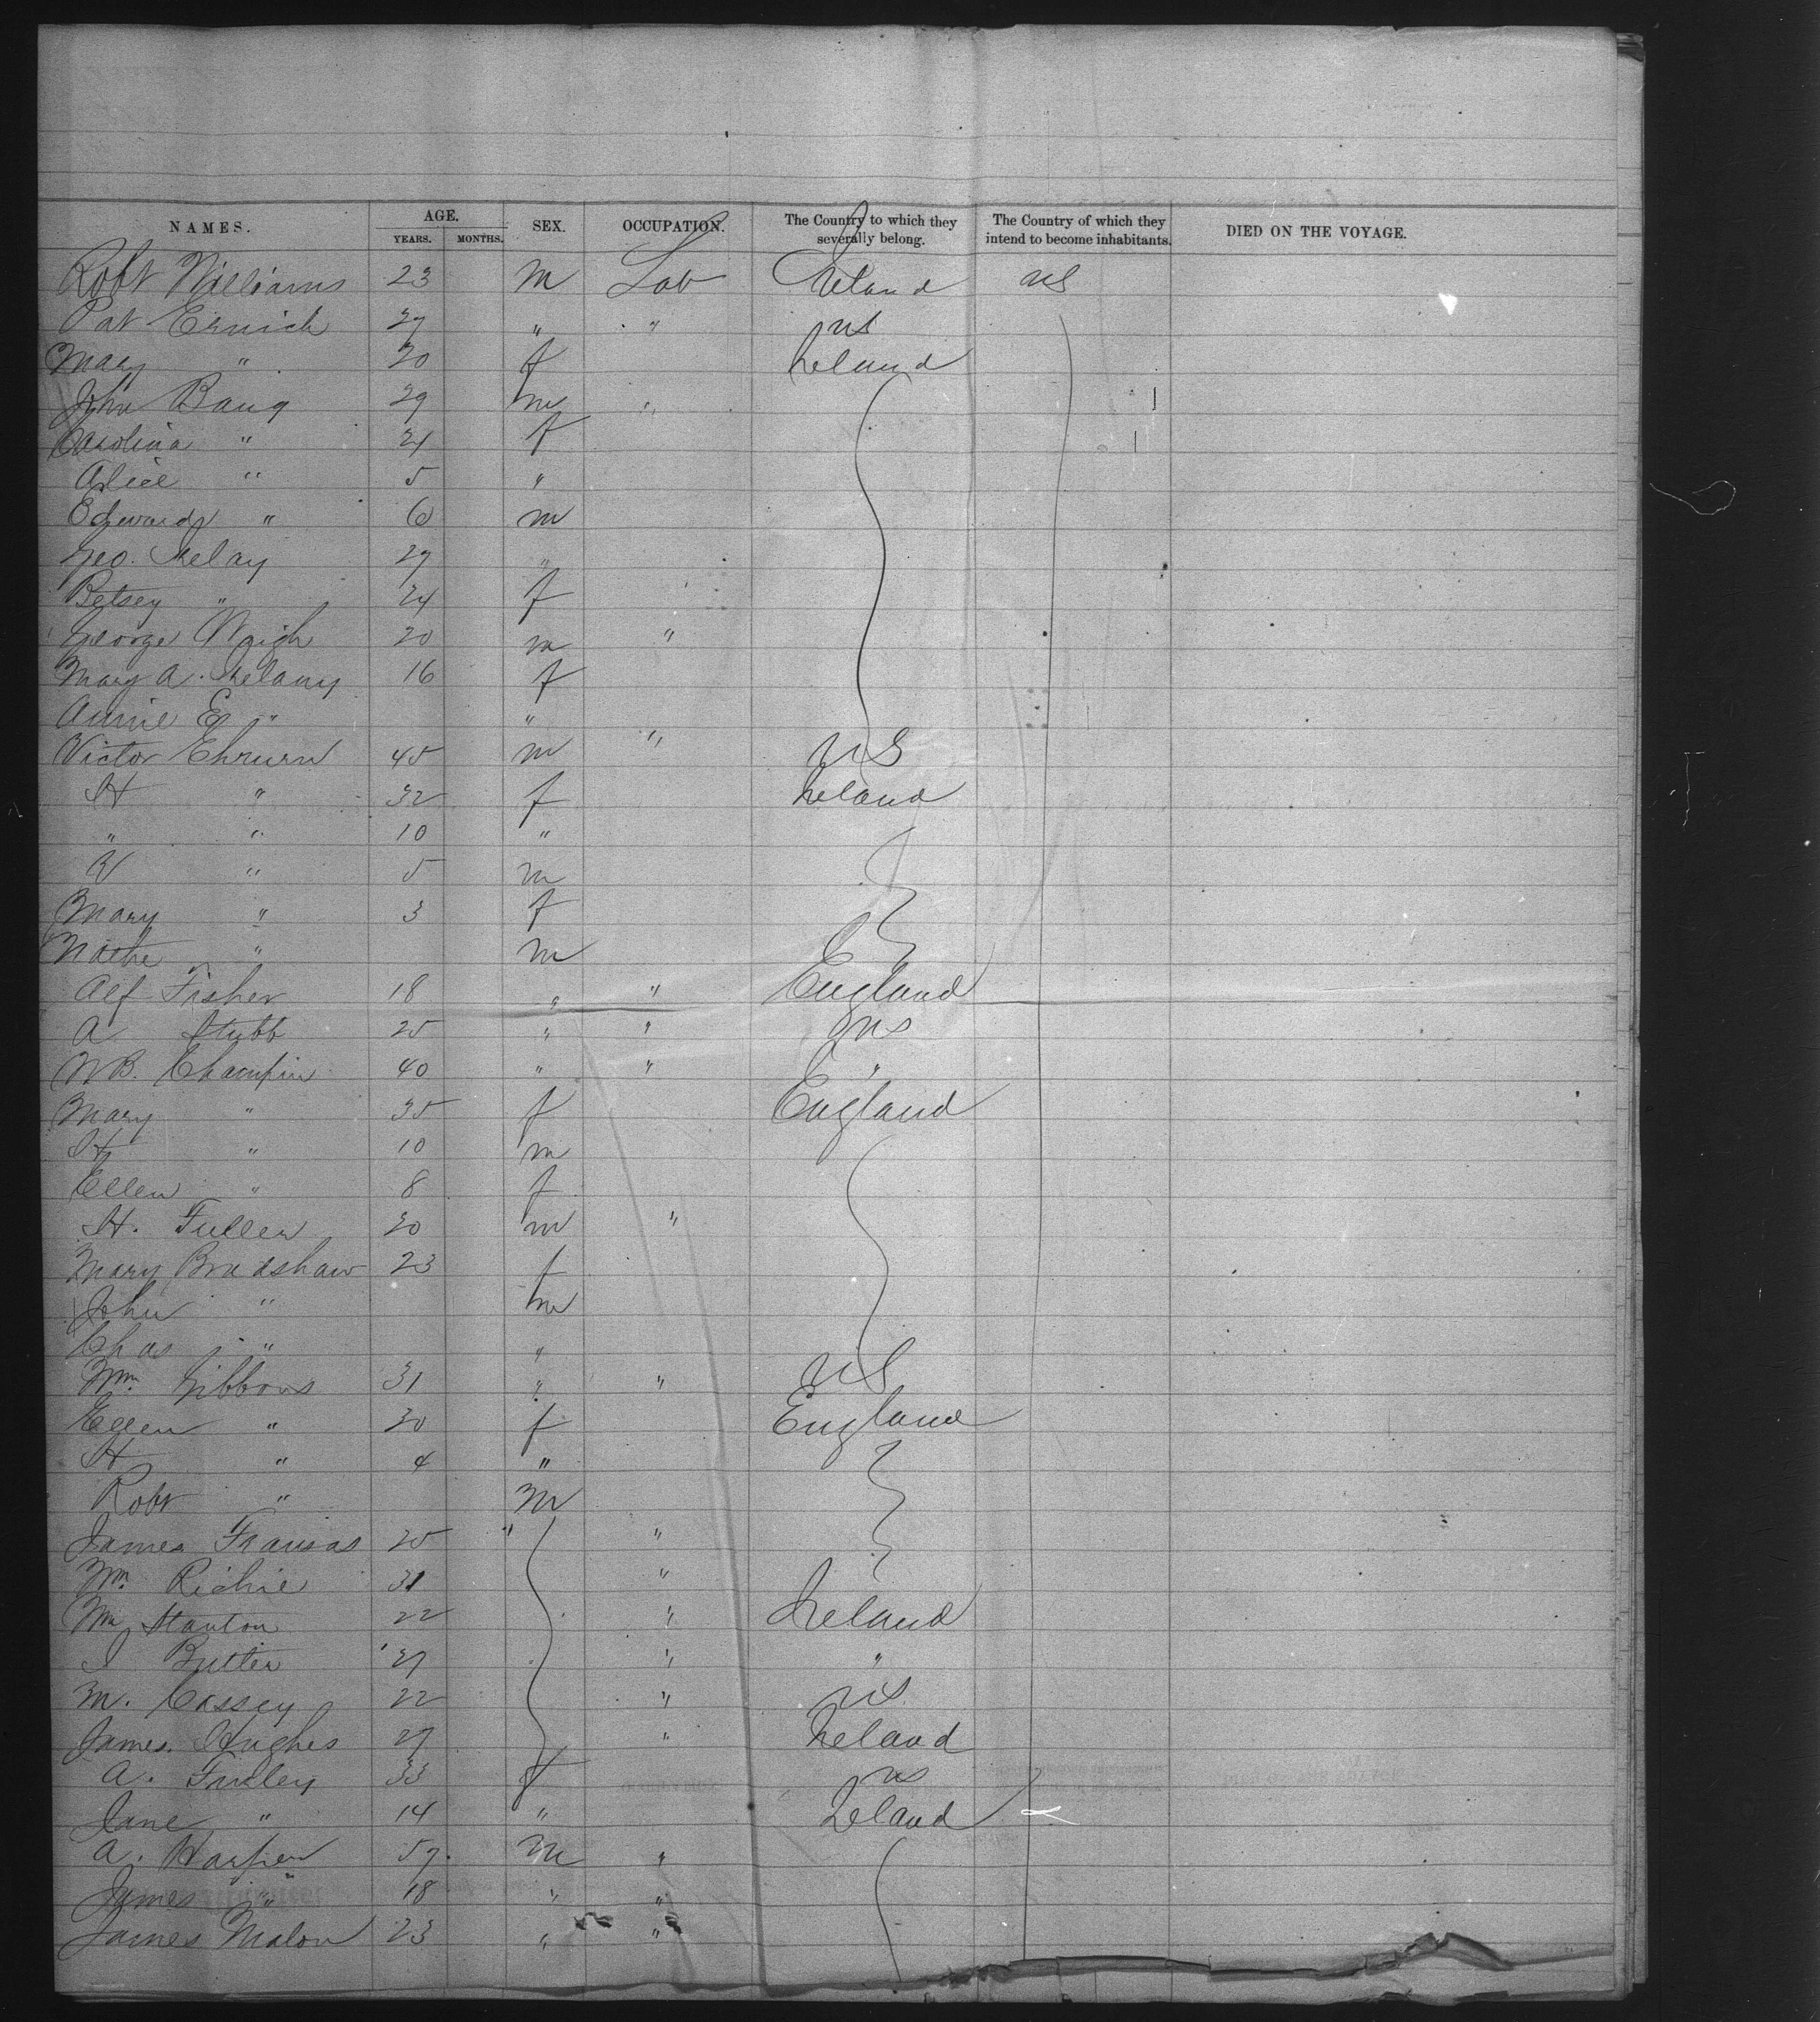 NAMES. AGE. YEARS. MONTHS. SEX. OCCUPATION. The Country to which they severally belong. The Country of which they intend to become inhabitants. DIED ON THE VOYAGE.
Robt Williams 23 m Lab Ireland US
Pat 27 " " US
Mary " 20 f Ireland
John Bang 29 m "
Carolina " 21 f
Alice " 5 "
Edward " 6 m
Geo. 27 "
Betsey " 24 f
George 20 m "
Mary A. 16 f
Annie E " "
Victor 45 m " US
H " 32 f Ireland
" " 10 "
" 5 m
Mary " 3 f
" m
Alf Fisher 18 " " England
A Stubb 25 " " US
W B. Champin 40 " " "
Mary " 35 f England
H " 10 m
Ellen " 8 f
H. Fuller 20 m "
Mary Bradshaw 23 f
John " m
Chas " "
Wm. Gibbons 31 " " US
Ellen " 30 f England
H " 4 "
Robt " m
James Fransas 25 " "
Wm. Richie 31 "
Wm Stanton 22 " Ireland
27 " "
M. Cassey 22 " US
James Hughes 27 " Ireland
A. 33 f US
Jane " 14 " Ireland
A. Harper 57 m "
James " 18 " "
James Malon 23 " "